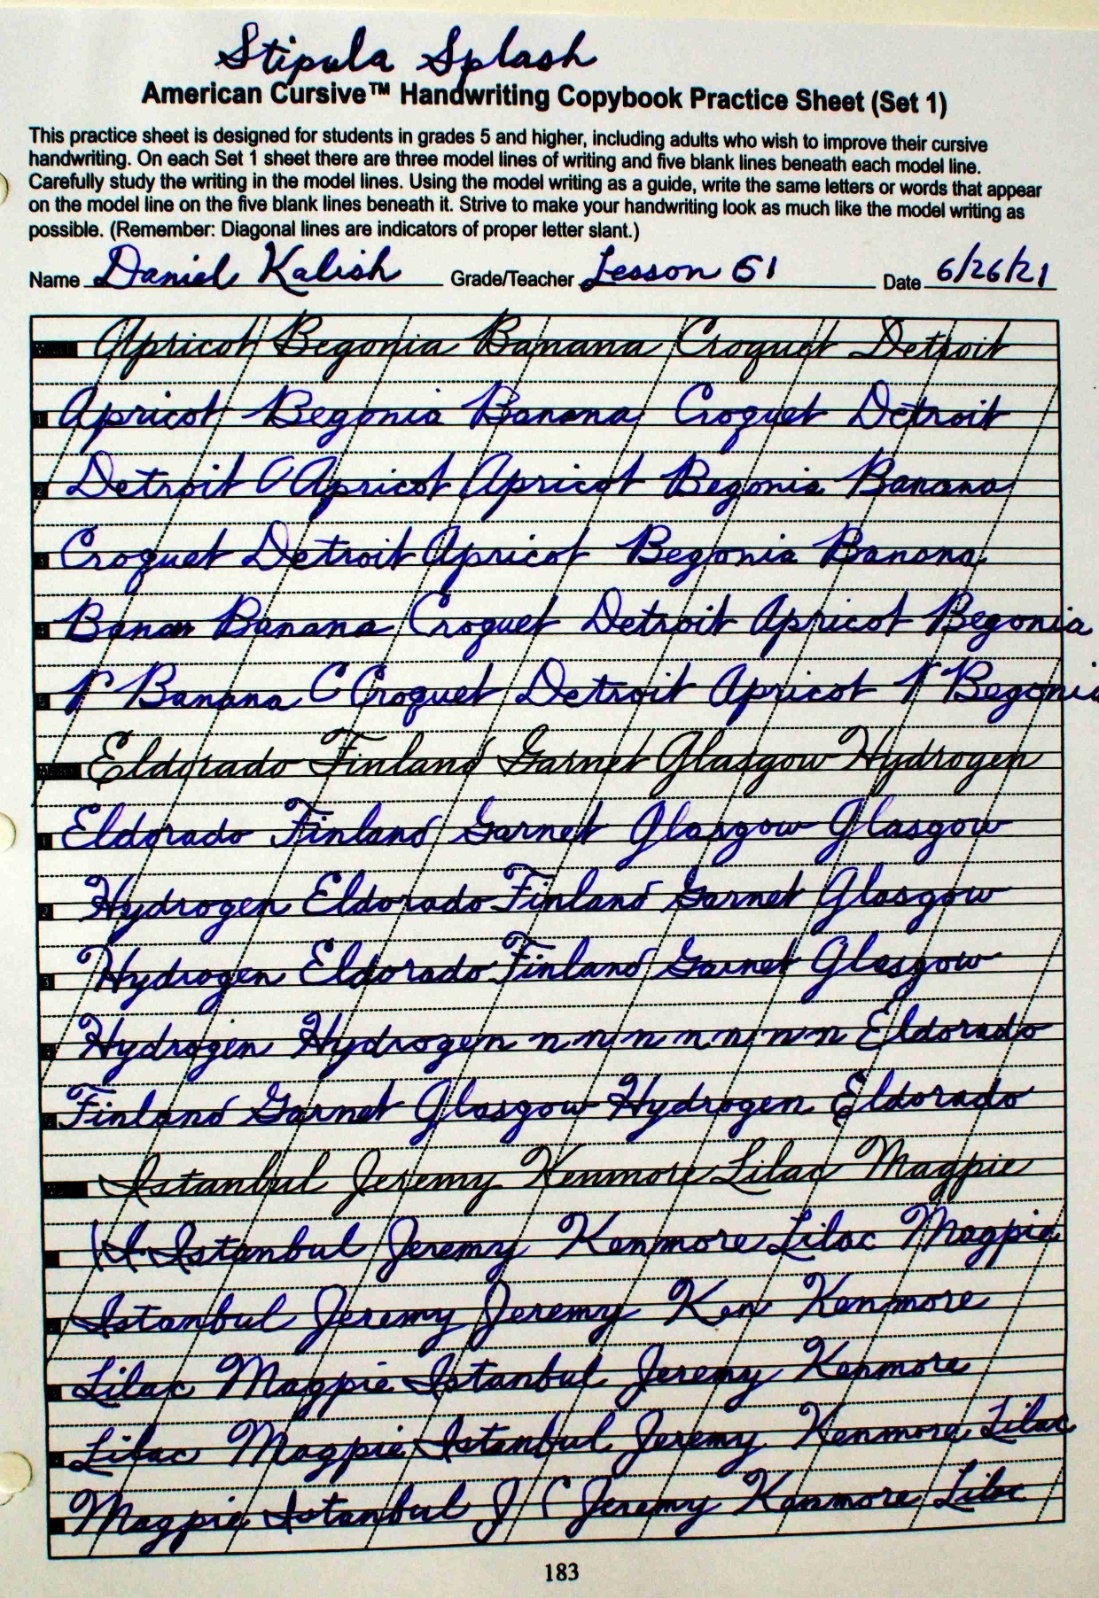 Stipula Splash
American Cursive™ Handwriting Copybook Practice Sheet (Set 1)
This practice sheet is designed for students in grades 5 and higher, including adults who wish to improve their cursive
handwriting. On each Set 1 sheet there are three model lines of writing and five blank lines beneath each model line.
Carefully study the writing in the model lines. Using the model writing as a guide, write the same letters or words that appear
on the model line on the five blank lines beneath it. Strive to make your handwriting look as much like the model writing as
possible. (Remember: Diagonal lines are indicators of proper letter slant.)
Name Daniel Kalish Grade/Teacher Lesson 51 Date 6/26/21
Apricot Begonia Banana Croquet Detroit
1 Apricot Begonia Banana Croquet Detroit
2 Detroit C Apricot Apricot Begonia Banana
3 Croquet Detroit Apricot Begonia Banana
4 Banan Banana Croquet Detroit Apricot Begonia
5 Banana C Croquet Detroit Apricot Begonia
Eldorado Finland Garnet Glasgow Hydrogen
1 Eldorado Finland Garnet Glasgow Glasgow
2 Hydrogen Eldorado Finland Garnet Glasgow
3 Hydrogen Eldorado Finland Garnet Glasgow
4 Hydrogen Hydrogen n n n n n n n n Eldorado
5 Finland Garnet Glasgow Hydrogen Eldorado
Istanbul Jeremy Kenmore Lilac Magpie
Istanbul Jeremy Kenmore Lilac Magpie
Istanbul Jeremy Jeremy Ken Kenmore
Lilac Magpie Istanbul Jeremy Kenmore
Lilac Magpie Istanbul Jeremy Kenmore Lilac
Magpie Istanbul J Jeremy Kenmore Lilac
183